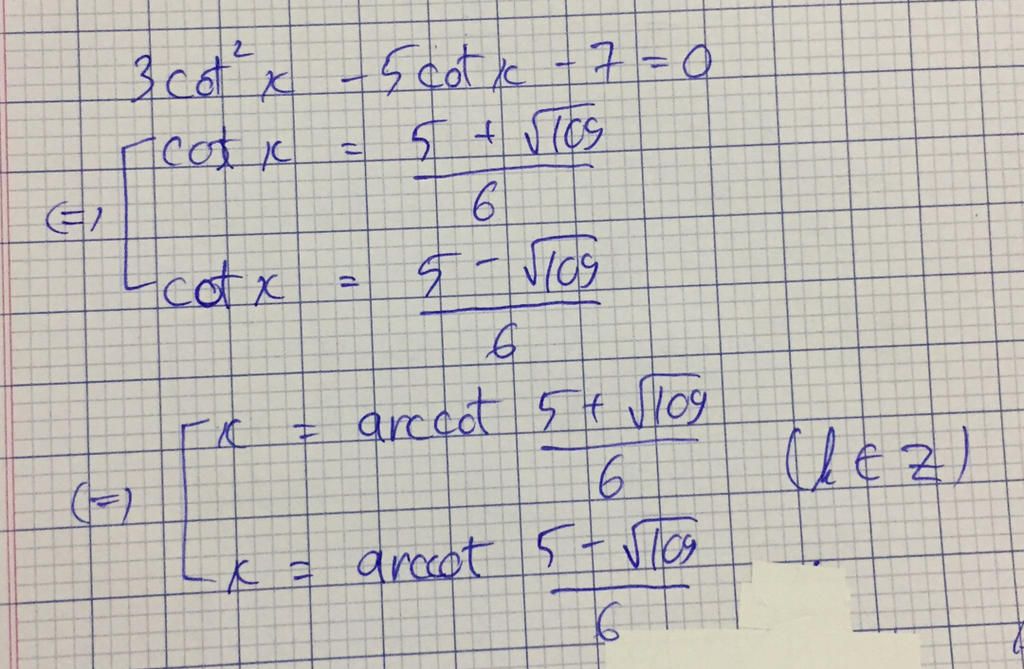 3cot²x - 5cotx - 7 = 0
(=) [ cot x = (5 + √109)/6
cot x = (5 - √109)/6
(=) [ x = arccot (5 + √109)/6 (k ∈ Z)
x = arccot (5 - √109)/6